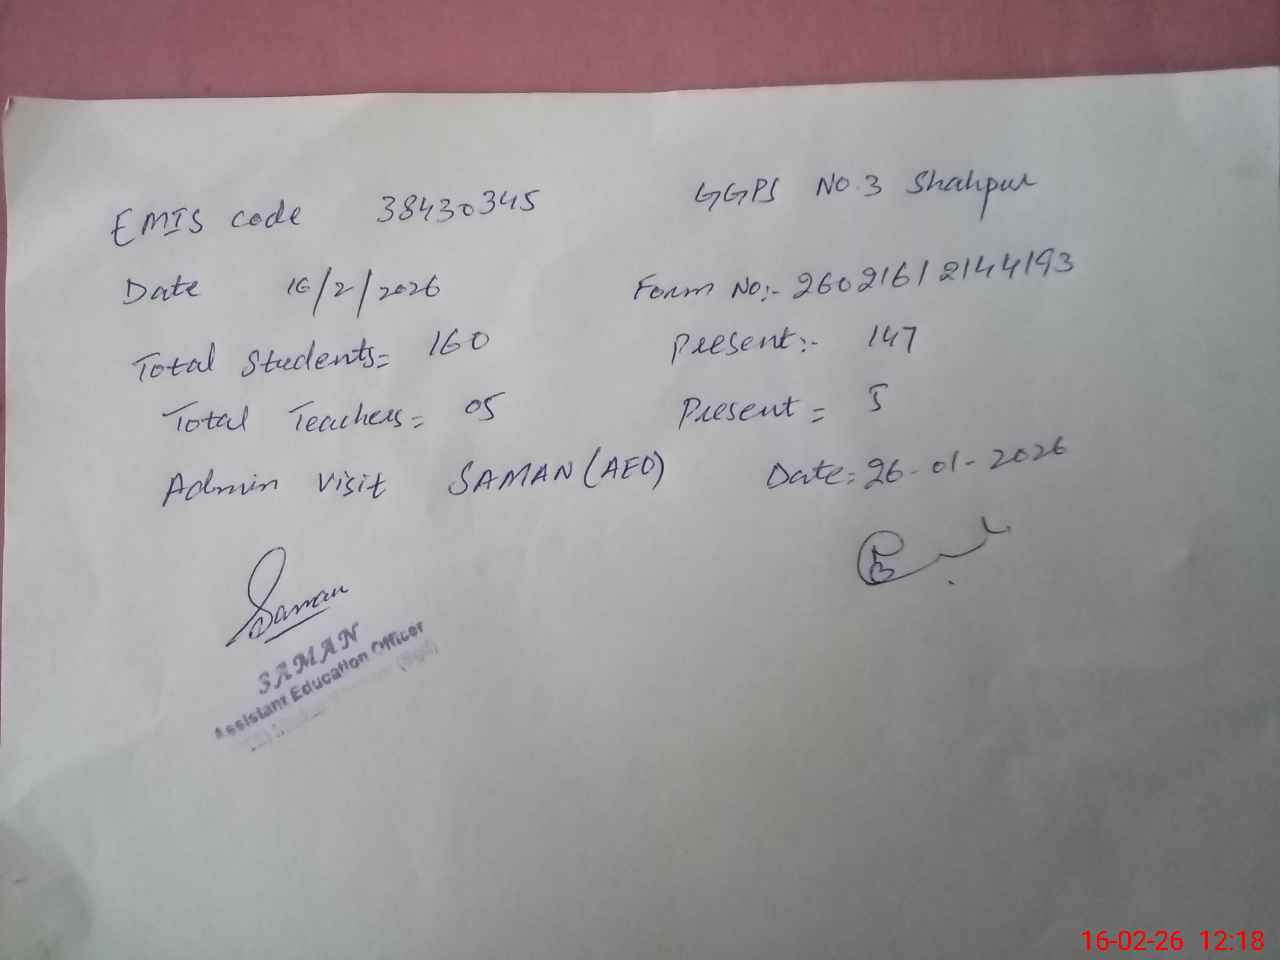 EMIS code 38430345 GGPS NO.3 Shahpur
Date 16/2/2026 Form NO:- 26021612144193
Total Students= 160 Present:- 147
Total Teachers= 05 Present = 5
Admin Visit SAMAN (AEO) Date: 26-01-2026
Saman
SAMAN
Assistant Education Officer
16-02-26 12:18